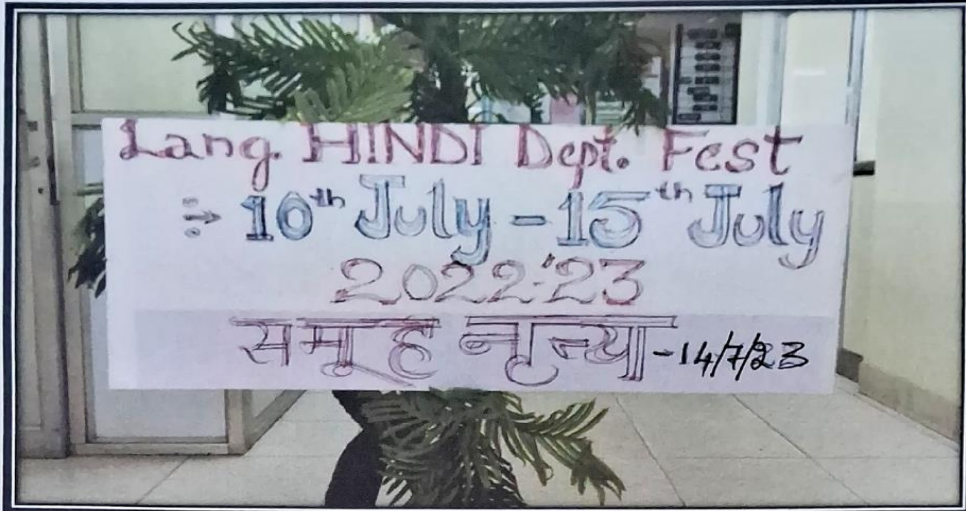 Lang. HINDI Dept. Fest
⇒ 10th July - 15th July
2022-23
समूह नृत्या - 14/7/23